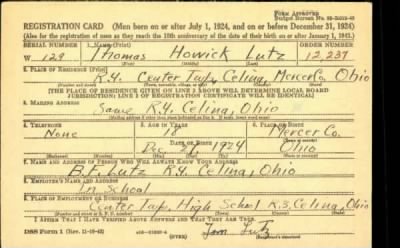 FORM APPROVED
REGISTRATION CARD (Men born on or after July 1, 1924, and on or before December 31, 1924)
(Also for the registration of men as they reach the 18th anniversary of the date of their birth on or after January 1, 1943.)
SERIAL NUMBER 1. NAME (Print) ORDER NUMBER
W 129 Thomas Howick Lutz 12,237
(First) (Middle) (Last)
2. PLACE OF RESIDENCE (Print)
R.4. Center Twp, Celina, Mercer Co, Ohio
[THE PLACE OF RESIDENCE GIVEN ON LINE 2 ABOVE WILL DETERMINE LOCAL BOARD
JURISDICTION; LINE 2 OF REGISTRATION CERTIFICATE WILL BE IDENTICAL]
3. MAILING ADDRESS
Same R.4. Celina, Ohio
4. TELEPHONE 5. AGE IN YEARS 6. PLACE OF BIRTH
None 18 Mercer Co.
DATE OF BIRTH
Dec. 1924 Ohio
7. NAME AND ADDRESS OF PERSON WHO WILL ALWAYS KNOW YOUR ADDRESS
B.F. Lutz R.4. Celina, Ohio
8. EMPLOYER'S NAME AND ADDRESS
In School
9. PLACE OF EMPLOYMENT OR BUSINESS
Center Twp. High School R.3, Celina, Ohio
I AFFIRM THAT I HAVE VERIFIED ABOVE ANSWERS AND THAT THEY ARE TRUE.
DSS Form 1 (Rev. 11-16-42) (OVER) Tom Lutz